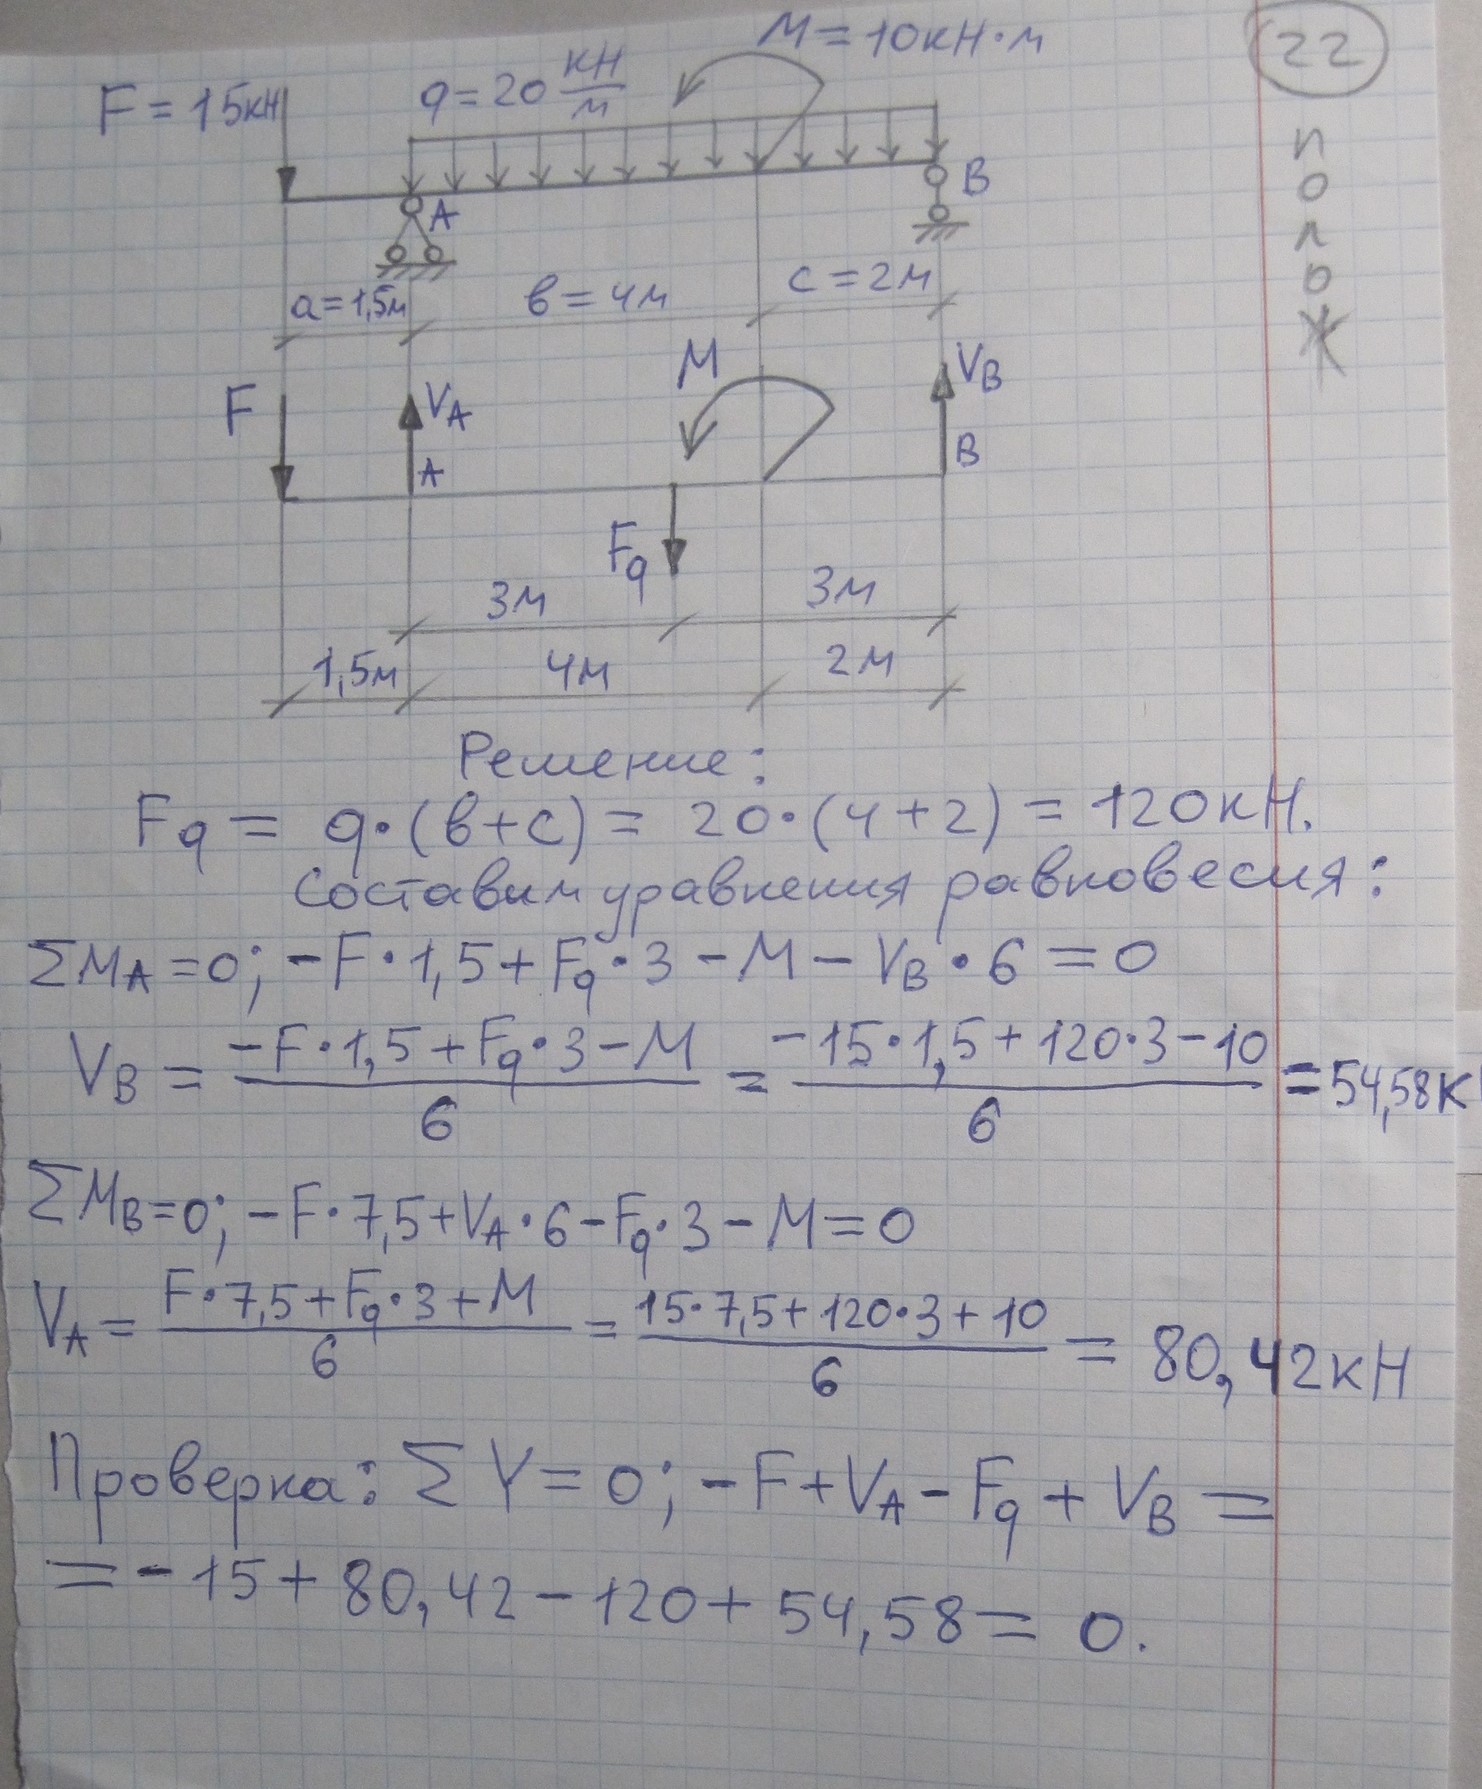 M = 10кН·м
22
полож
F = 15кН
q = 20 кН/м
A
B
a = 1,5м
в = 4м
c = 2м
M
F
VA
VB
A
B
Fq
3м
3м
1,5м
4м
2м
Решение:
Fq = q·(в+c) = 20·(4+2) = 120кН.
Составим уравнения равновесия:
ΣMA = 0; -F·1,5 + Fq·3 - M - VB·6 = 0
VB = (-F·1,5 + Fq·3 - M)/6 = (-15·1,5 + 120·3 - 10)/6 = 54,58к
ΣMB = 0; -F·7,5 + VA·6 - Fq·3 - M = 0
VA = (F·7,5 + Fq·3 + M)/6 = (15·7,5 + 120·3 + 10)/6 = 80,42кН
Проверка: ΣY = 0; -F + VA - Fq + VB =
= -15 + 80,42 - 120 + 54,58 = 0.